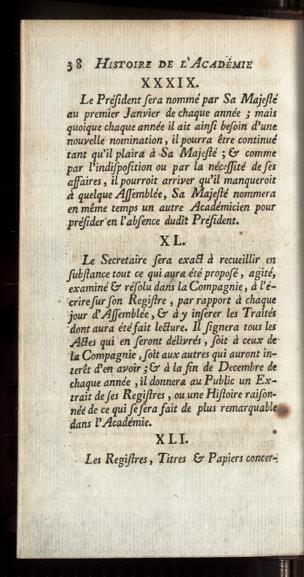 38 HISTOIRE DE L'ACADÉMIE
XXXIX.
Le Préſident ſera nommé par Sa Majeſté
au premier Janvier de chaque année ; mais
quoique chaque année il ait ainſi beſoin d'une
nouvelle nomination, il pourra être continué
tant qu'il plaira à Sa Majeſté ; & comme
par l'indiſpoſition ou par la néceſſité de ſes
affaires, il pourroit arriver qu'il manqueroit
à quelque Aſſemblée, Sa Majeſté nommera
en même temps un autre Académicien pour
préſider en l'abſence dudit Préſident.
XL.
Le Secretaire ſera exact à recueillir en
ſubſtance tout ce qui aura été propoſé, agité,
examiné & réſolu dans la Compagnie, à l'é-
crire ſur ſon Regiſtre, par rapport à chaque
jour d'Aſſemblée, & à y inſerer les Traités
dont aura été fait lecture. Il ſignera tous les
Actes qui en ſeront délivrés, ſoit à ceux de
la Compagnie, ſoit aux autres qui auront in-
terêt d'en avoir ; & à la fin de Decembre de
chaque année, il donnera au Public un Ex-
trait de ſes Regiſtres, ou une Hiſtoire raiſon-
née de ce qui ſe ſera fait de plus remarquable
dans l'Académie.
XLI.
Les Regiſtres, Titres & Papiers concer-